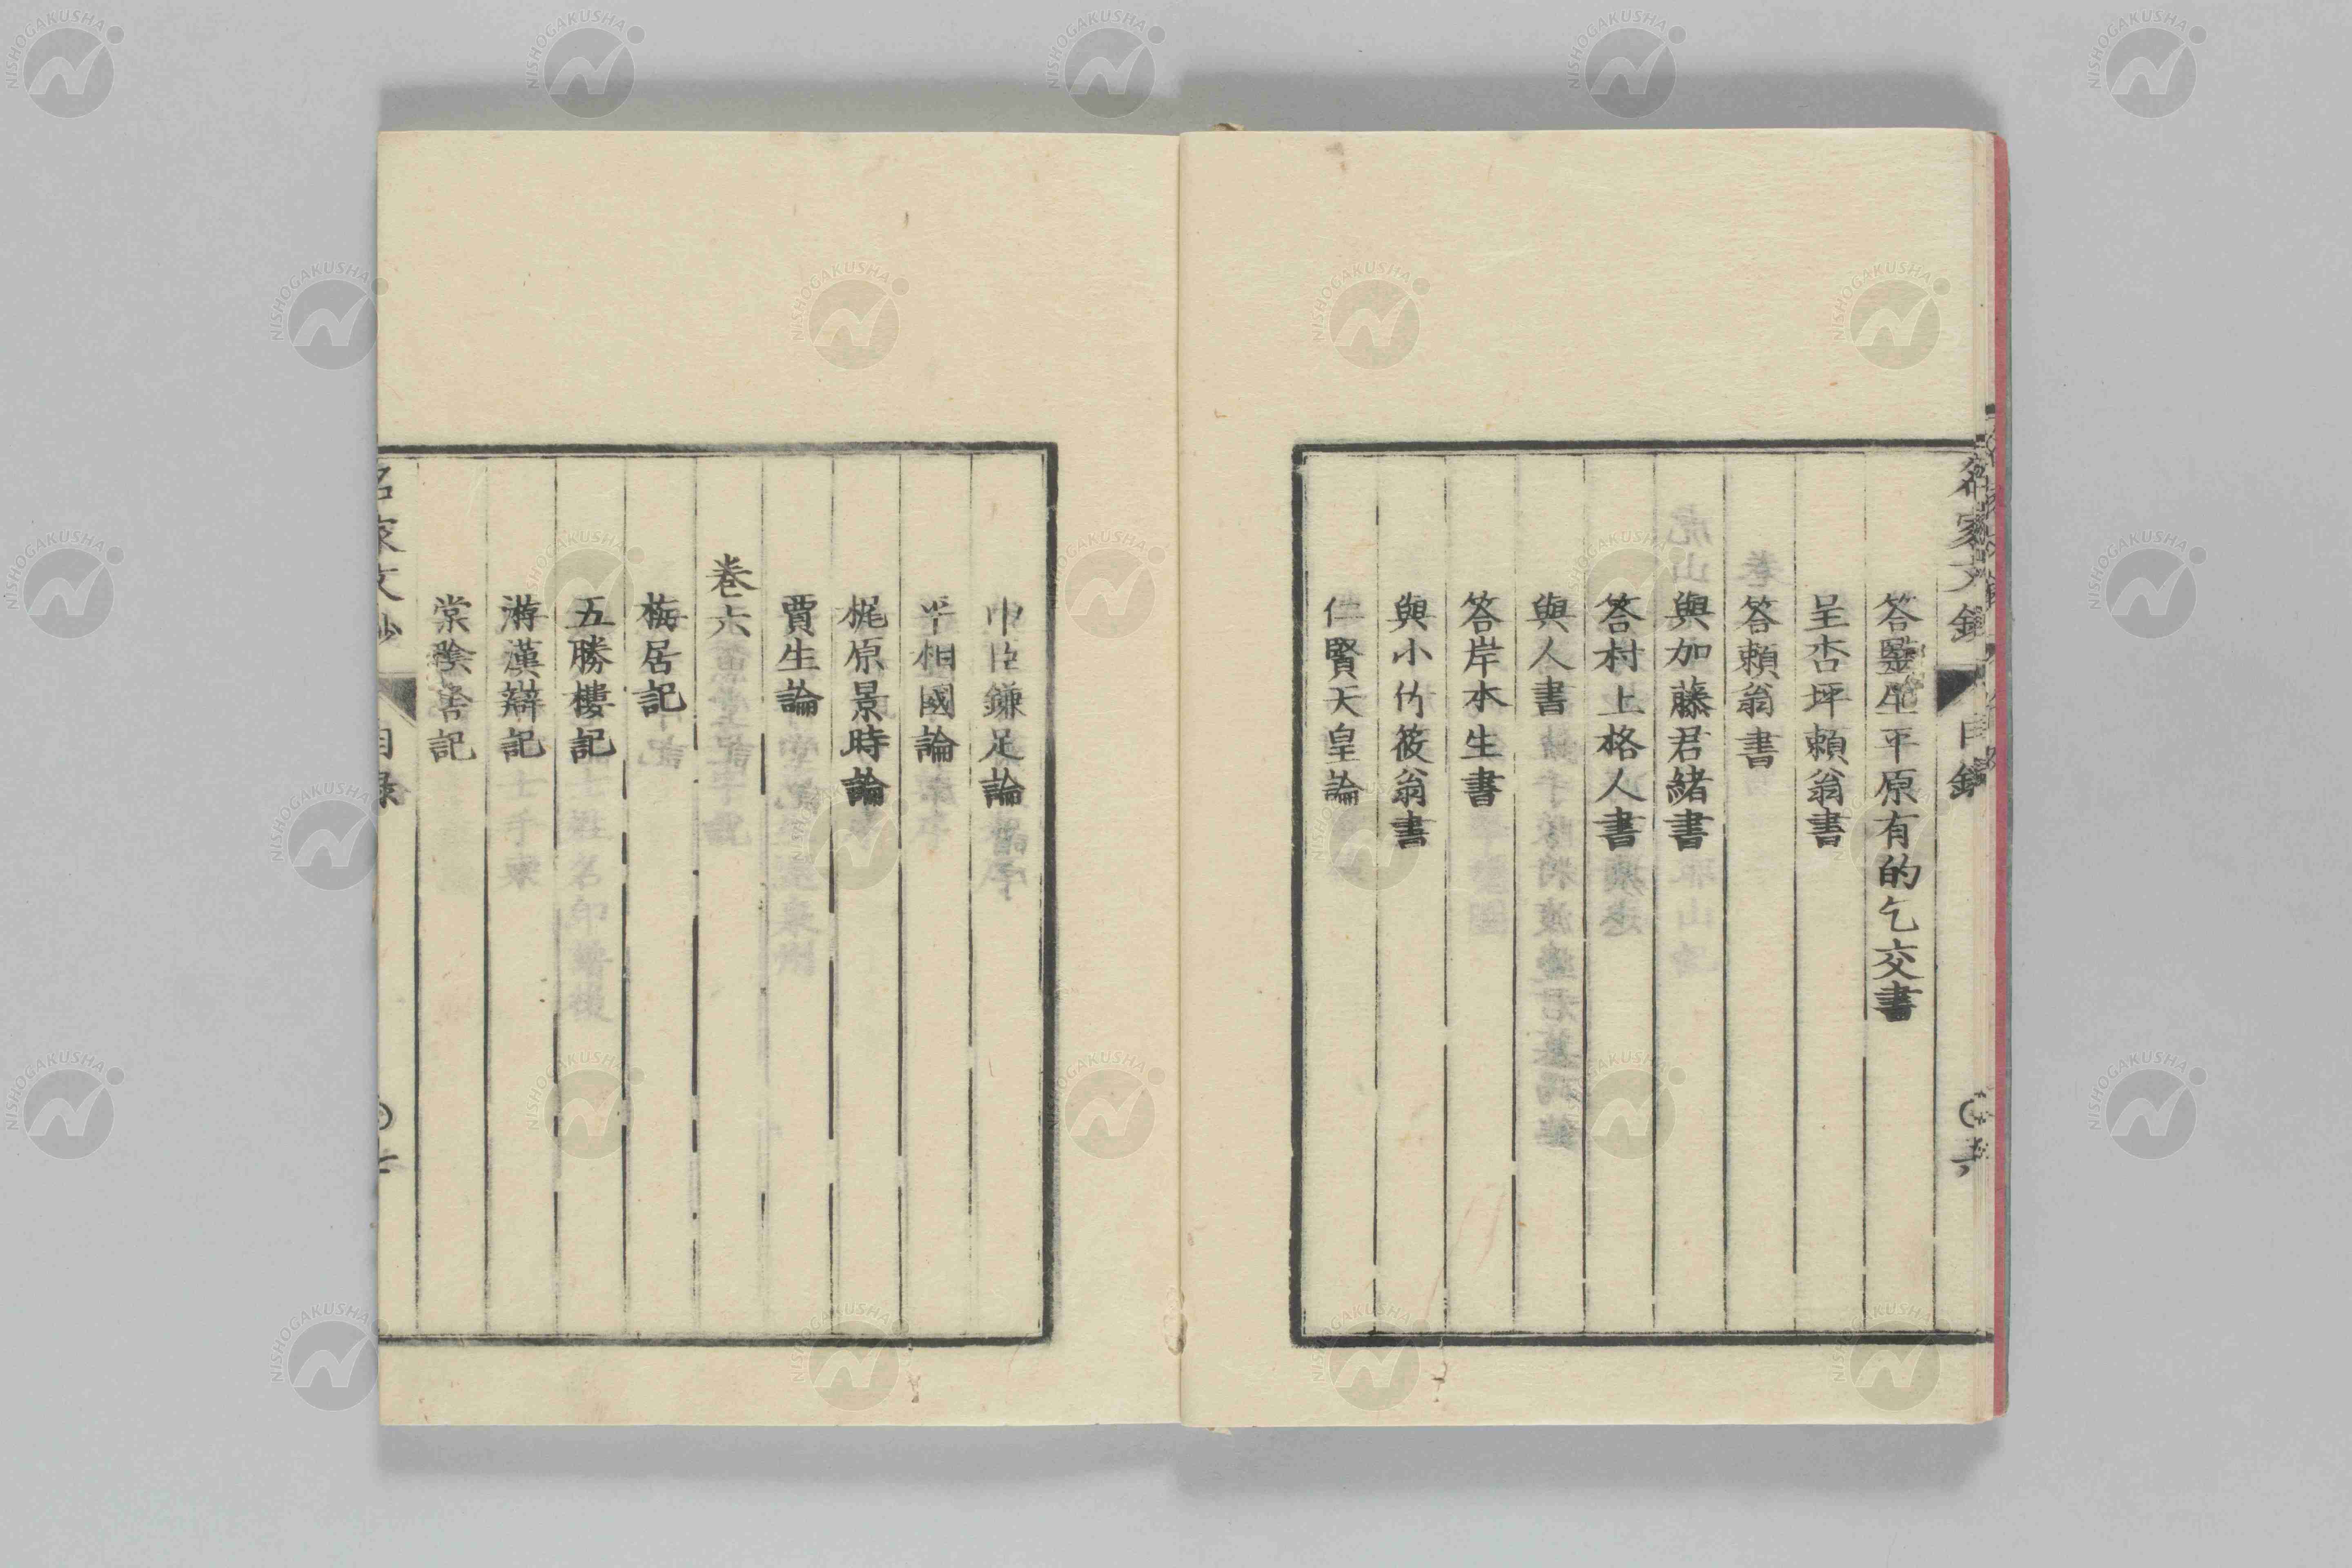 答毉生平原有的乞交書
呈杏坪賴翁書
答賴翁書
與加藤君緒書
答村上格人書
與人書
答岸本生書
與小竹筱翁書
仁賢天皇論
中臣鎌足論
平相國論
梶原景時論
賈生論
卷六
梅居記
五勝樓記
游漢辯記
棠陰書記
名家文鈔
目錄
NISHOGAKUSHA